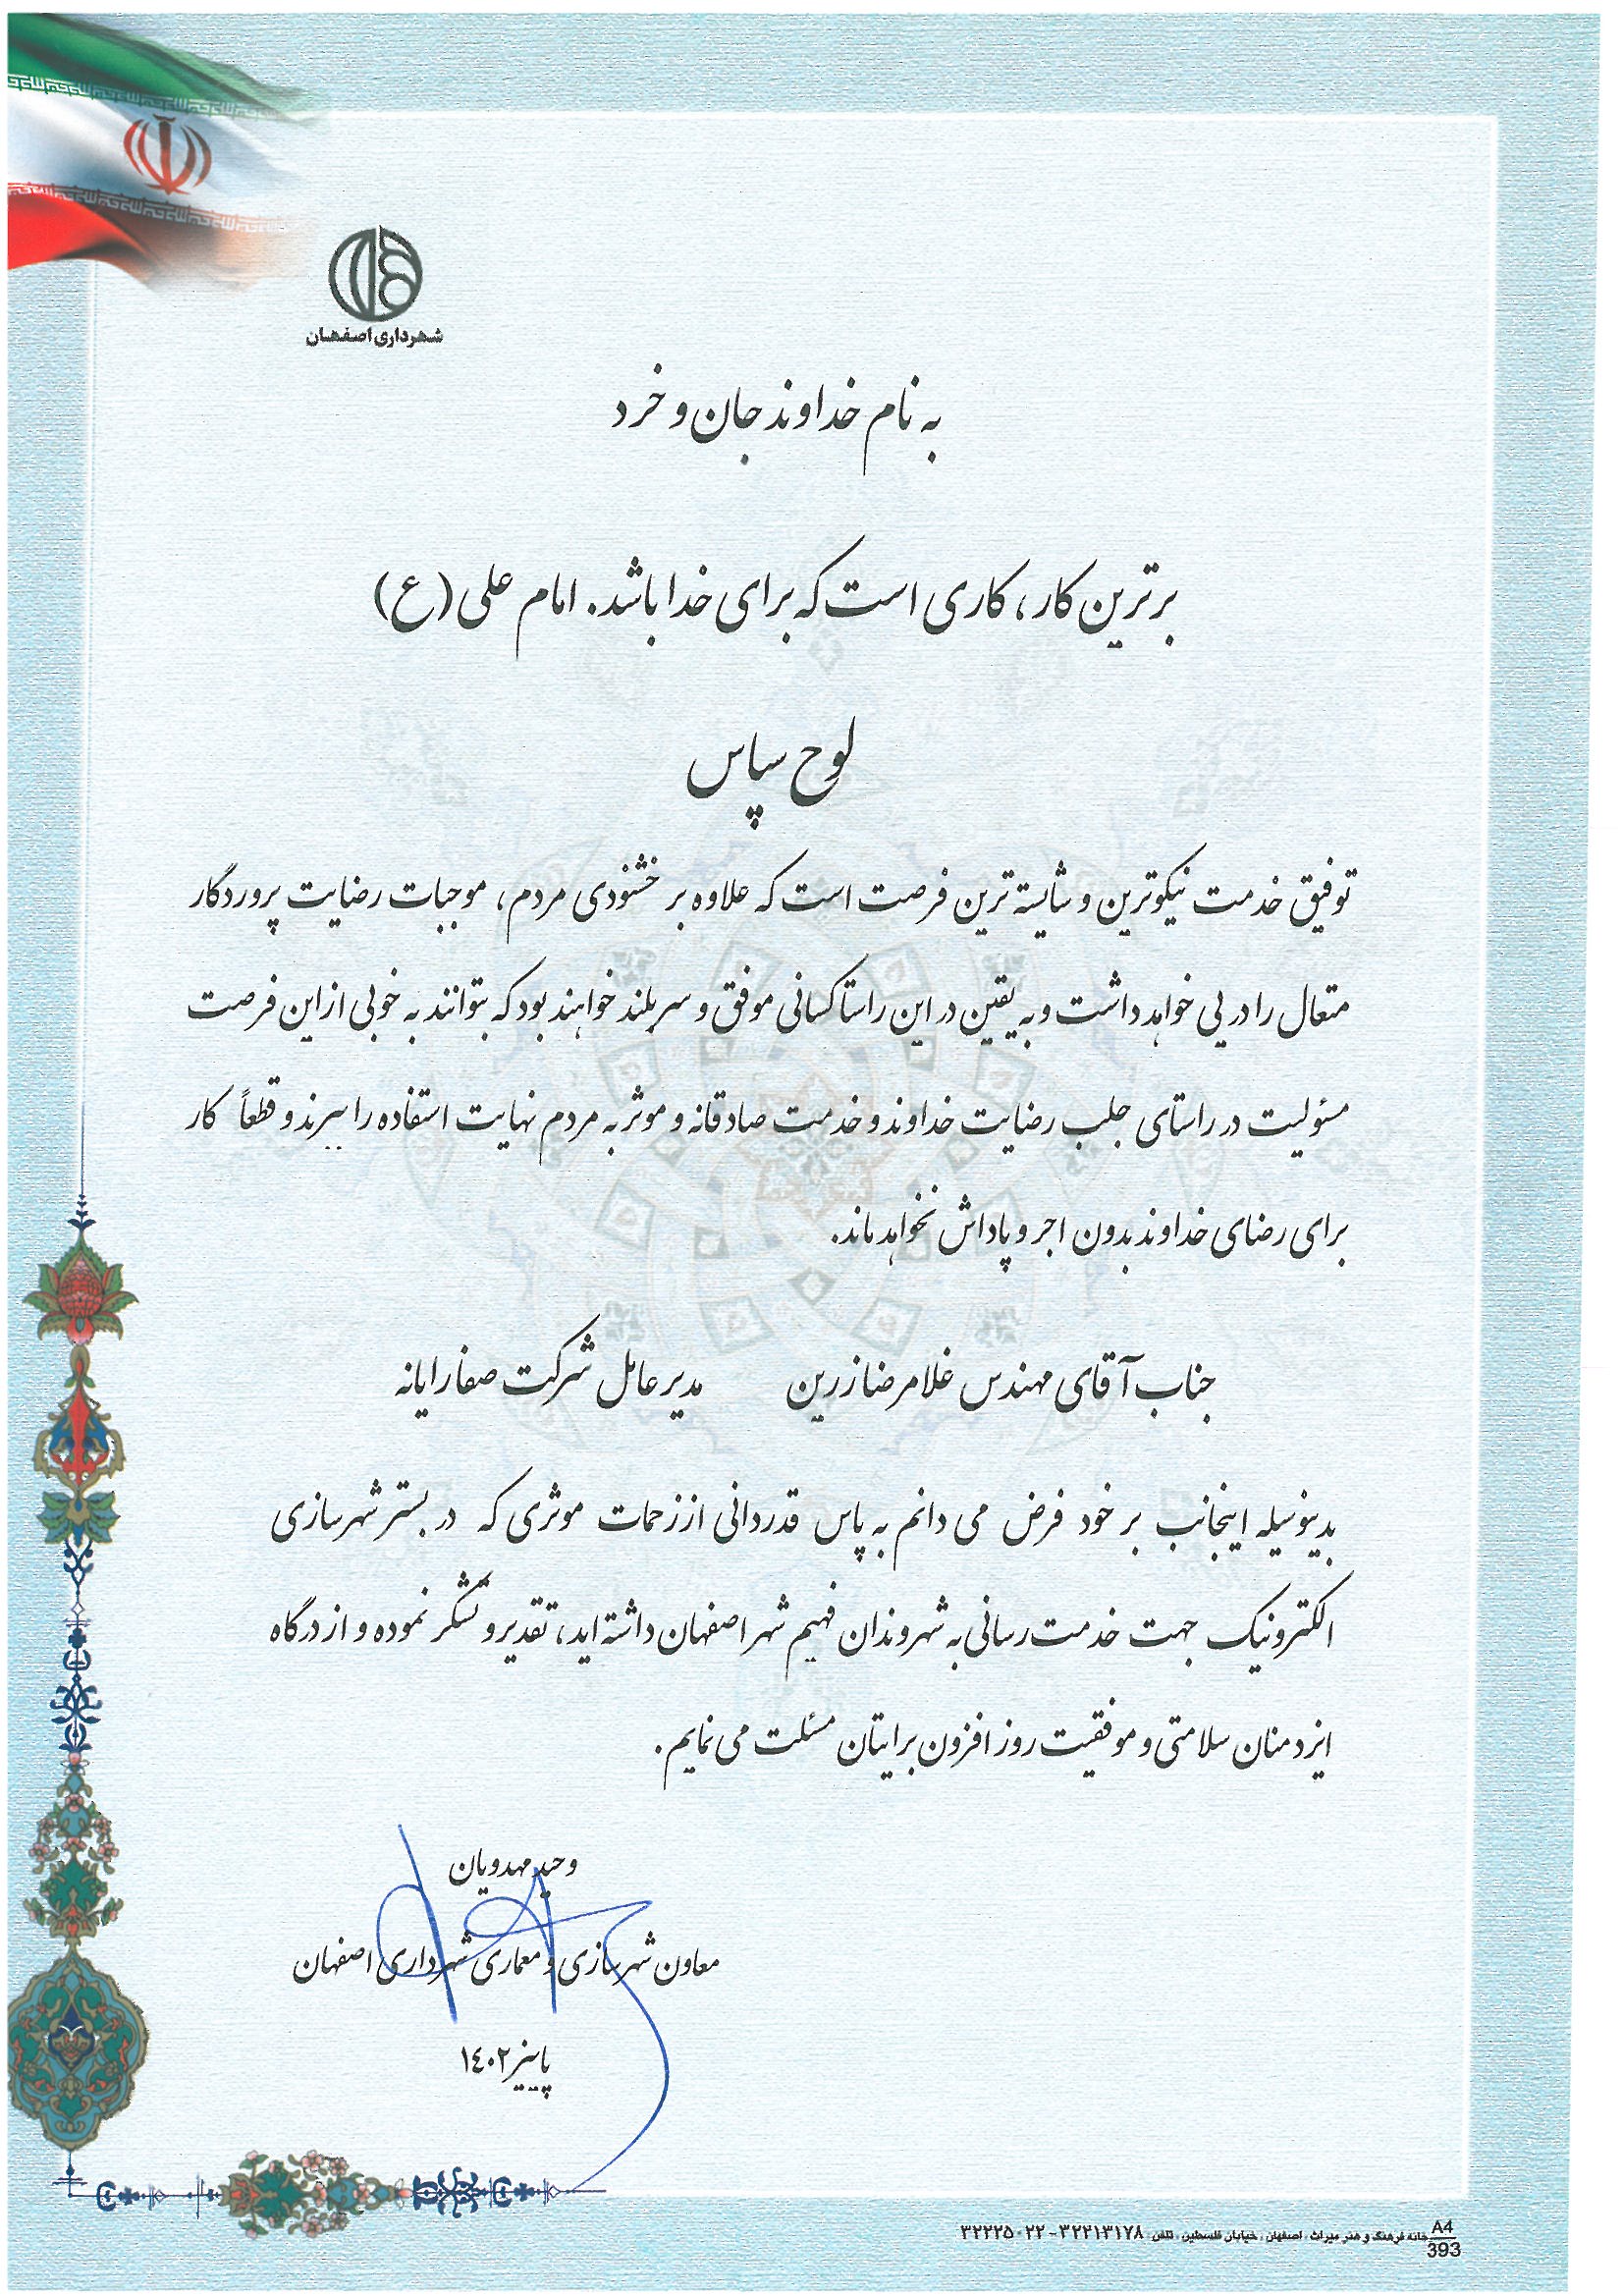 شهرداری اصفهان
به نام خداوند جان و خرد
برترین کار، کاری است که برای خدا باشد. امام علی (ع)
لوح سپاس
توفیق خدمت نیکوترین و شایسته ترین فرصت است که علاوه بر خشنودی مردم، موجبات رضایت پروردگار
متعال را در پی خواهد داشت و به یقین در این راستا کسانی موفق و سربلند خواهند بود که بتوانند به خوبی از این فرصت
مسئولیت در راستای جلب رضایت خداوند و خدمت صادقانه و موثر به مردم نهایت استفاده را ببرند و قطعاً کار
برای رضای خداوند بدون اجر و پاداش نخواهد ماند.
جناب آقای مهندس غلامرضا زرین مدیر عامل شرکت صفارایانه
بدینوسیله اینجانب بر خود فرض می دانم به پاس قدردانی از زحمات موثری که در بستر شهرسازی
الکترونیک جهت خدمت رسانی به شهروندان فهیم شهر اصفهان داشته اید، تقدیر و تشکر نموده و از درگاه
ایزد منان سلامتی و موفقیت روز افزون برایتان مسئلت می نمایم.
وحید مهدویان
معاون شهرسازی و معماری شهرداری اصفهان
پاییز ۱۴۰۲
A4
393
خانه فرهنگ و هنر میراث، اصفهان، خیابان فلسطین، تلفن: ۳۲۲۱۳۱۷۸ - ۳۲۲۲۵۰۲۲